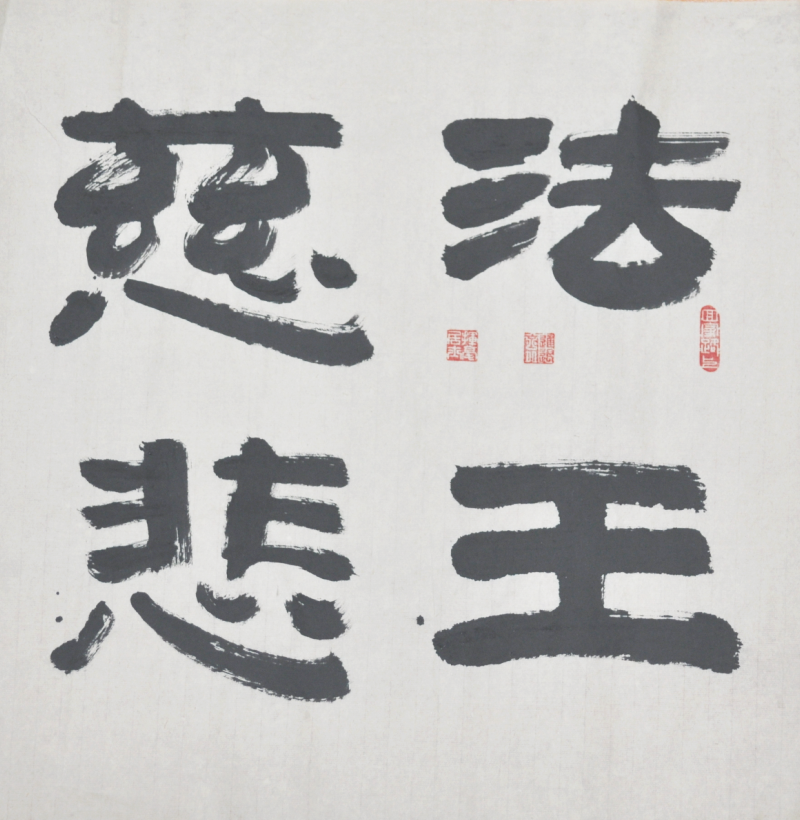 法王
慈悲